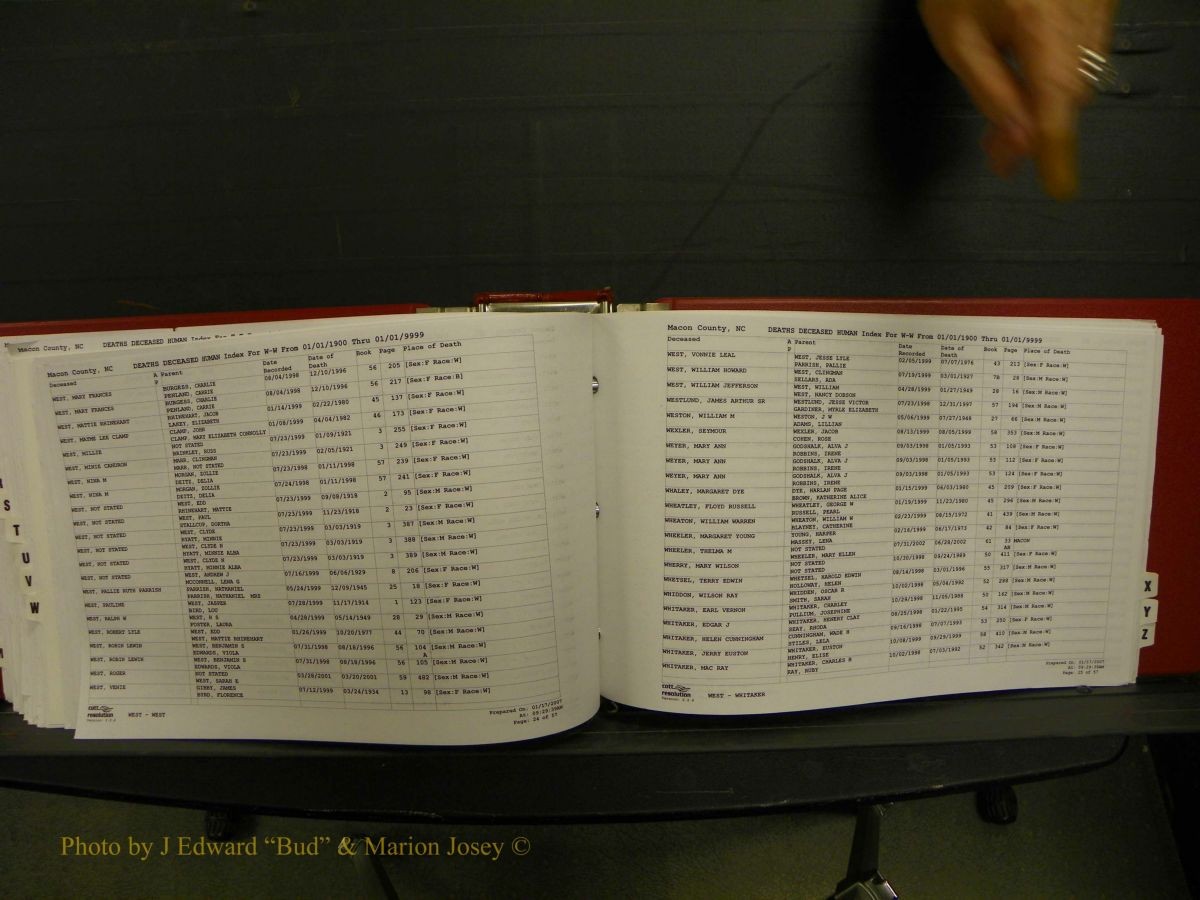 Macon County, NC DEATHS DECEASED HUMAN Index
Macon County, NC DEATHS DECEASED HUMAN Index For W-W From 01/01/1900 Thru 01/01/9999
Deceased A P Parent Date Recorded Date of Death Book Page Place of Death
WEST, MARY FRANCES BURGESS, CHARLIE 08/04/1998 12/10/1996 56 205 [Sex:F Race:W]
PENLAND, CARRIE
WEST, MARY FRANCES BURGESS, CHARLIE 08/04/1998 12/10/1996 56 217 [Sex:F Race:B]
PENLAND, CARRIE
WEST, MATTIE RHINEHART RHINEHART, JACOB 01/14/1999 02/22/1980 45 137 [Sex:F Race:W]
LAKEY, ELIZABETH
WEST, MAYME LEE CLAMP CLAMP, JOHN 01/08/1999 04/04/1982 46 173 [Sex:F Race:W]
CLAMP, MARY ELIZABETH CONNOLLY
WEST, MILLIE NOT STATED 07/23/1999 01/09/1921 3 255 [Sex:F Race:W]
BRINKLEY, RUSS
WEST, MINIS CAMERON MARR, CLINGMAN 07/23/1999 02/05/1921 3 249 [Sex:F Race:W]
MARR, NOT STATED
WEST, NINA M MORGAN, ZOLLIE 07/23/1998 01/11/1998 57 239 [Sex:F Race:W]
DEITZ, DELIA
WEST, NINA M MORGAN, ZOLLIE 07/24/1998 01/11/1998 57 241 [Sex:F Race:W]
DEITZ, DELIA
WEST, NOT STATED WEST, EDD 07/23/1999 09/08/1918 2 95 [Sex:M Race:W]
RHINEHART, MATTIE
WEST, NOT STATED WEST, PAUL 07/23/1999 11/23/1918 2 23 [Sex:F Race:W]
STALLCUP, DORTHA
WEST, NOT STATED WEST, CLYDE 07/23/1999 03/03/1919 3 387 [Sex:M Race:W]
HYATT, MINNIE
WEST, NOT STATED WEST, CLYDE H 07/23/1999 03/03/1919 3 388 [Sex:M Race:W]
HYATT, MINNIE ALBA
WEST, NOT STATED WEST, CLYDE H 07/23/1999 03/03/1919 3 389 [Sex:M Race:W]
HYATT, MINNIE ALBA
WEST, NOT STATED WEST, ANDREW J 07/16/1999 06/06/1929 8 206 [Sex:F Race:W]
MCCONNELL, LENA G
WEST, PALLIE RUTH PARRISH PARRISH, NATHANIEL 05/24/1999 12/09/1945 25 18 [Sex:F Race:W]
PARRISH, NATHANIEL MRS
WEST, PAULINE WEST, JASPER 07/28/1999 11/17/1914 1 123 [Sex:F Race:W]
BIRD, LOU
WEST, RALPH W WEST, H S 04/28/1999 05/14/1949 28 29 [Sex:M Race:W]
FOSTER, LAURA
WEST, ROBERT LYLE WEST, EDD 01/26/1999 10/20/1977 44 70 [Sex:M Race:W]
WEST, MATTIE RHINEHART
WEST, ROBIN LEWIS WEST, BENJAMIN S 07/31/1998 08/18/1996 56 104 [Sex:M Race:W]
EDWARDS, VIOLA A
WEST, ROBIN LEWIS WEST, BENJAMIN S 07/31/1998 08/18/1996 56 105 [Sex:M Race:W]
EDWARDS, VIOLA
WEST, ROGER NOT STATED 03/28/2001 03/20/2001 59 482 [Sex:M Race:W]
WEST, SARAH E
WEST, VENIE GIBBY, JAMES 07/12/1999 03/24/1934 13 98 [Sex:F Race:W]
BYRD, FLORENCE
cott resolution
WEST - WEST
Prepared On: 01/17/2007
At: 09:29:35AM
Page: 24 of 57
Macon County, NC DEATHS DECEASED HUMAN Index For W-W From 01/01/1900 Thru 01/01/9999
Deceased A P Parent Date Recorded Date of Death Book Page Place of Death
WEST, VONNIE LEAL WEST, JESSE LYLE 02/05/1999 07/07/1976 43 213 [Sex:F Race:W]
PARRISH, PALLIE
WEST, WILLIAM HOWARD WEST, CLINGMAN 07/19/1999 03/01/1927 78 28 [Sex:M Race:W]
SELLARS, ADA
WEST, WILLIAM JEFFERSON WEST, WILLIAM 04/28/1999 01/27/1949 28 16 [Sex:M Race:W]
WEST, NANCY DOBSON
WESTLUND, JAMES ARTHUR SR WESTLUND, JESSE VICTOR 07/23/1998 12/31/1997 57 194 [Sex:M Race:W]
GARDINER, MYRLE ELIZABETH
WESTON, WILLIAM M WESTON, J W 05/06/1999 07/27/1948 27 66 [Sex:M Race:W]
ADAMS, LILLIAN
WEXLER, SEYMOUR WEXLER, JACOB 08/13/1999 08/05/1999 58 353 [Sex:M Race:W]
COHEN, ROSE
WEYER, MARY ANN GODSHALK, ALVA J 09/03/1998 01/05/1993 53 108 [Sex:F Race:W]
ROBBINS, IRENE
WEYER, MARY ANN GODSHALK, ALVA J 09/03/1998 01/05/1993 53 112 [Sex:F Race:W]
ROBBINS, IRENE
WEYER, MARY ANN GODSHALK, ALVA J 09/03/1998 01/05/1993 53 124 [Sex:F Race:W]
ROBBINS, IRENE
WHALEY, MARGARET DYE DYE, HARLAN PAGE 01/15/1999 06/03/1980 45 209 [Sex:F Race:W]
BROWN, KATHERINE ALICE
WHEATLEY, FLOYD RUSSELL WHEATLEY, GEORGE W 01/19/1999 11/23/1980 45 296 [Sex:M Race:W]
RUSSELL, PEARL
WHEATON, WILLIAM WARREN WHEATON, WILLIAM W 02/23/1999 08/15/1972 41 439 [Sex:M Race:W]
BLAYNEY, CATHERINE
WHEELER, MARGARET YOUNG YOUNG, HARPER 02/16/1999 06/17/1973 42 84 [Sex:F Race:W]
MASSEY, LENA
WHEELER, THELMA M NOT STATED 07/31/2002 06/28/2002 61 33 MACON
WHEELER, MARY ELLEN
WHERRY, MARY WILSON NOT STATED 10/30/1998 09/24/1989 50 411 [Sex:F Race:W]
NOT STATED
WHETSEL, TERRY EDWIN WHETSEL, HAROLD EDWIN 08/14/1998 03/01/1996 55 317 [Sex:M Race:W]
HOLLOWAY, HELEN
WHIDDON, WILSON RAY WHIDDEN, OSCAR R 10/02/1998 05/04/1992 52 298 [Sex:M Race:W]
SMITH, SARAH
WHITAKER, EARL VERNON WHITAKER, CHARLEY 10/29/1998 11/05/1988 50 162 [Sex:M Race:W]
PULLIUM, JOSEPHINE
WHITAKER, EDGAR J WHITAKER, HENERY CLAY 08/25/1998 01/22/1995 54 314 [Sex:M Race:W]
SEAY, RHODA
WHITAKER, HELEN CUNNINGHAM CUNNINGHAM, WADE H 09/16/1998 07/07/1993 53 250 [Sex:F Race:W]
STILES, LELA
WHITAKER, JERRY EUSTON WHITAKER, EUSTON 10/08/1999 09/29/1999 58 410 [Sex:M Race:W]
HENRY, ELISE
WHITAKER, MAC RAY WHITAKER, CHARLES R 10/02/1998 07/03/1992 52 342 [Sex:M Race:W]
RAY, RUBY
cott resolution
WEST - WHITAKER
Prepared On: 01/17/2007
At: 09:29:35AM
Page: 25 of 57
S
T
U
V
W
X
Y
Z
Photo by J Edward “Bud” & Marion Josey ©